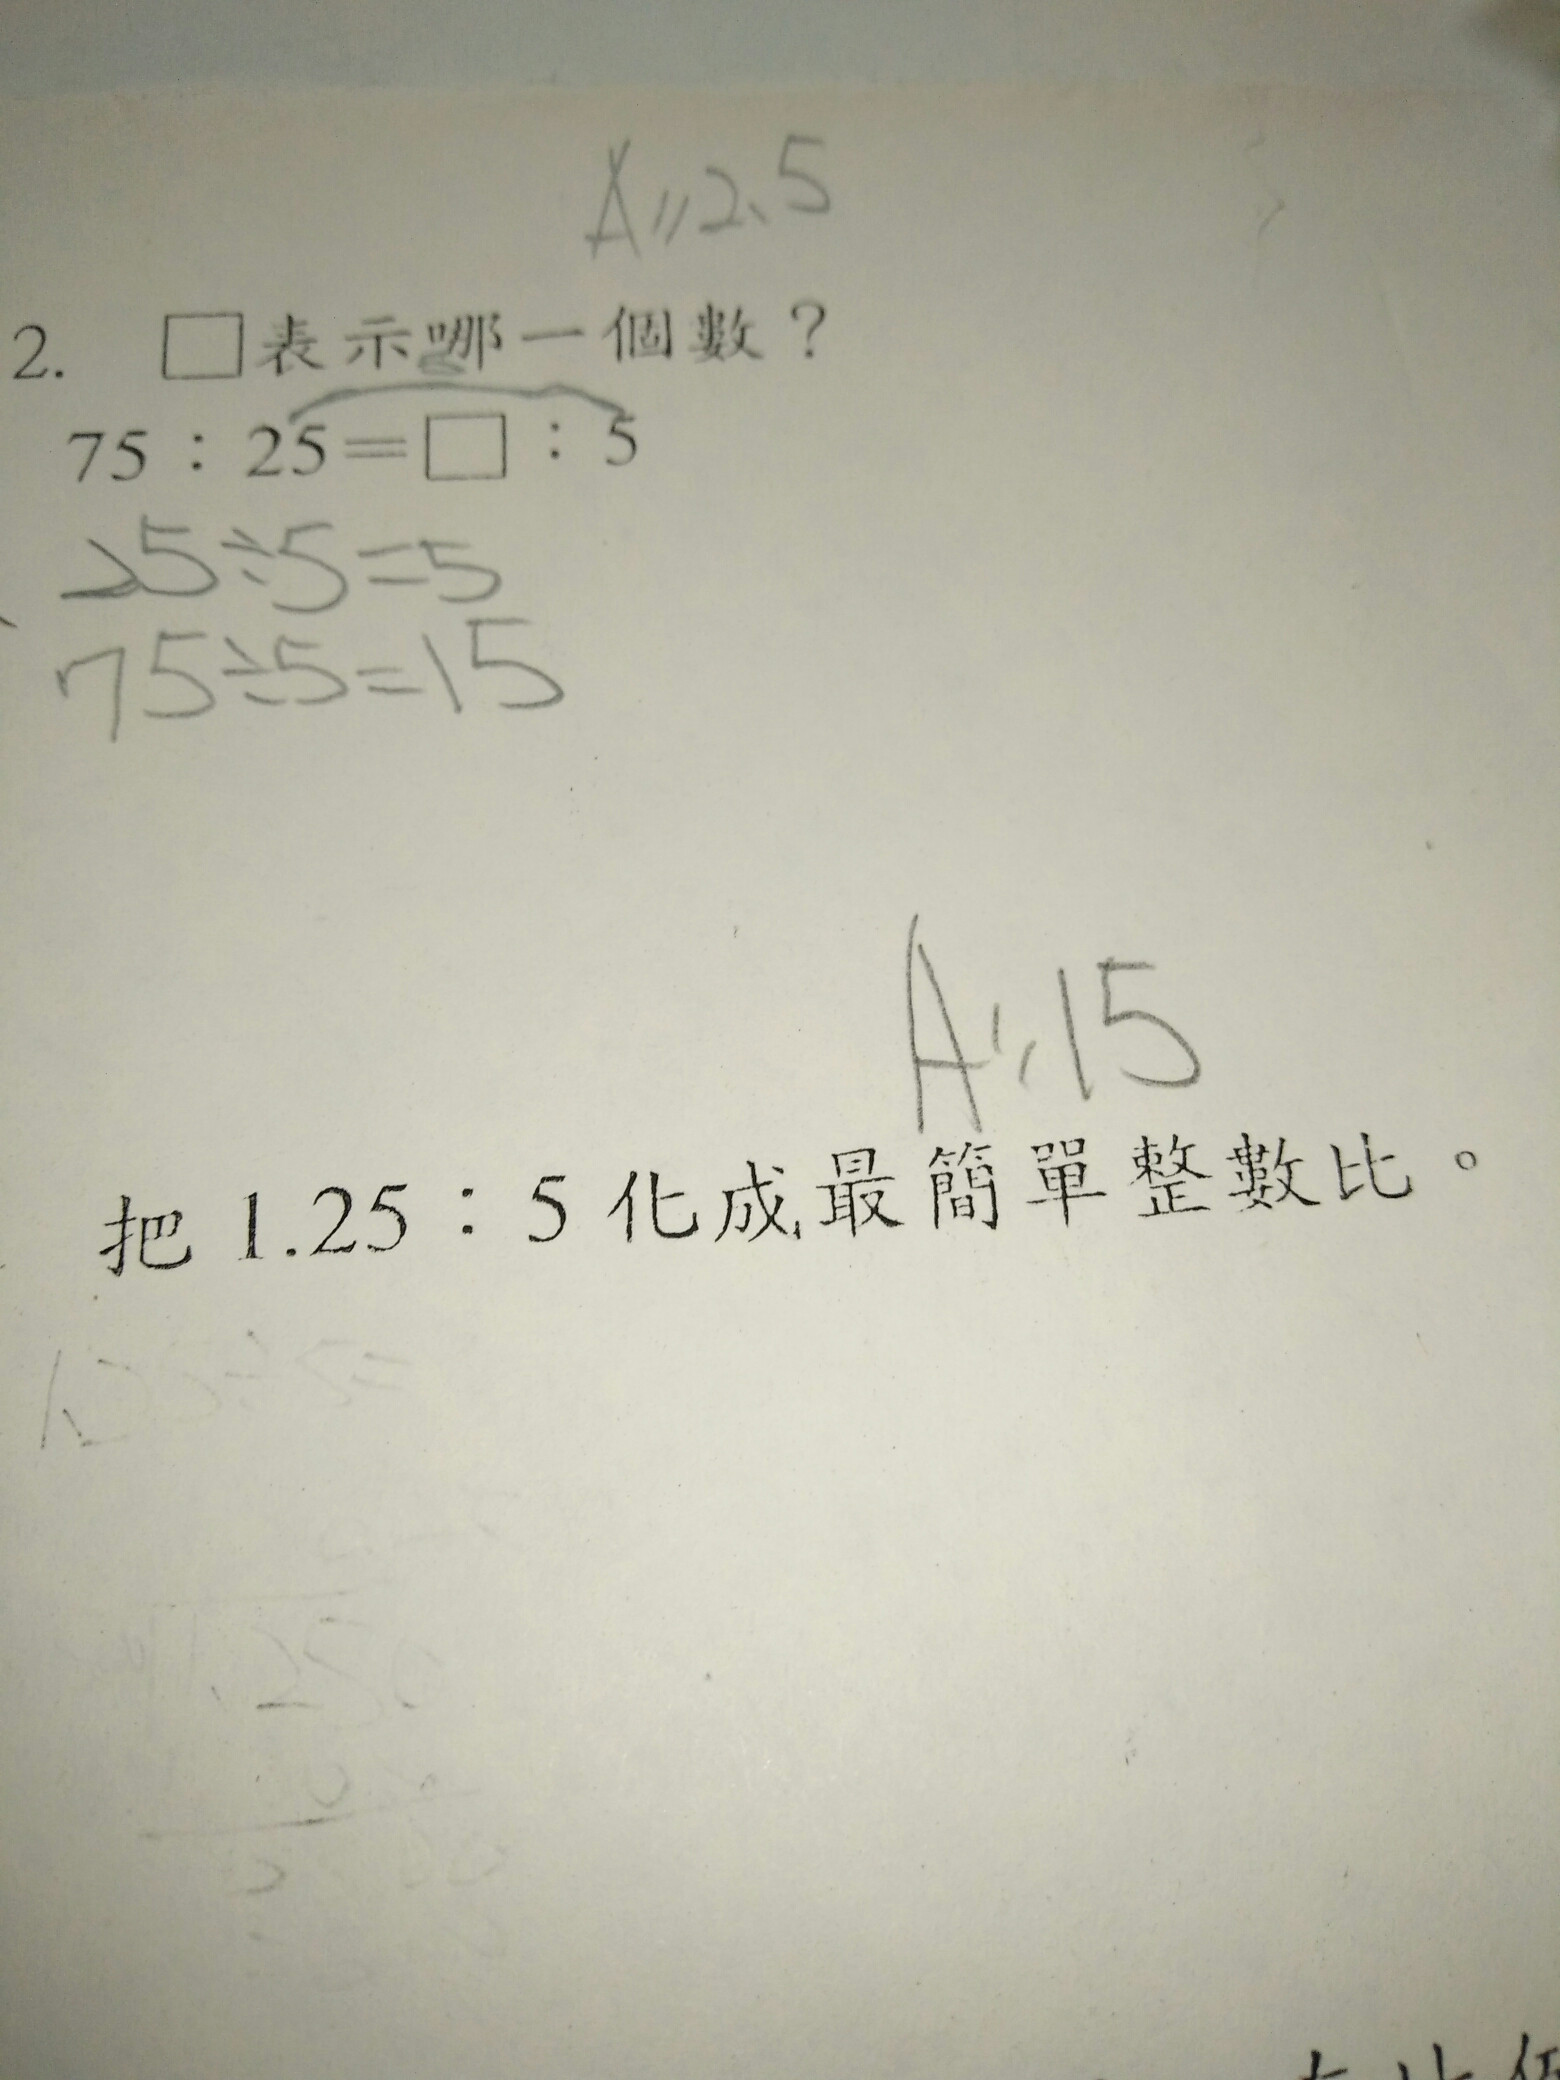 A:2.5
2. □表示哪一個數？
75：25＝□：5
25÷5=5
75÷5=15
A:15
把 1.25：5 化成最簡單整數比。